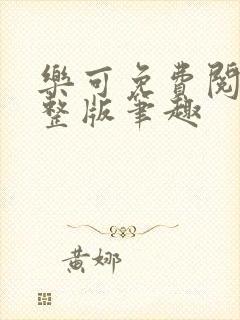 樂可免費閱
整版筆趣
黃娜